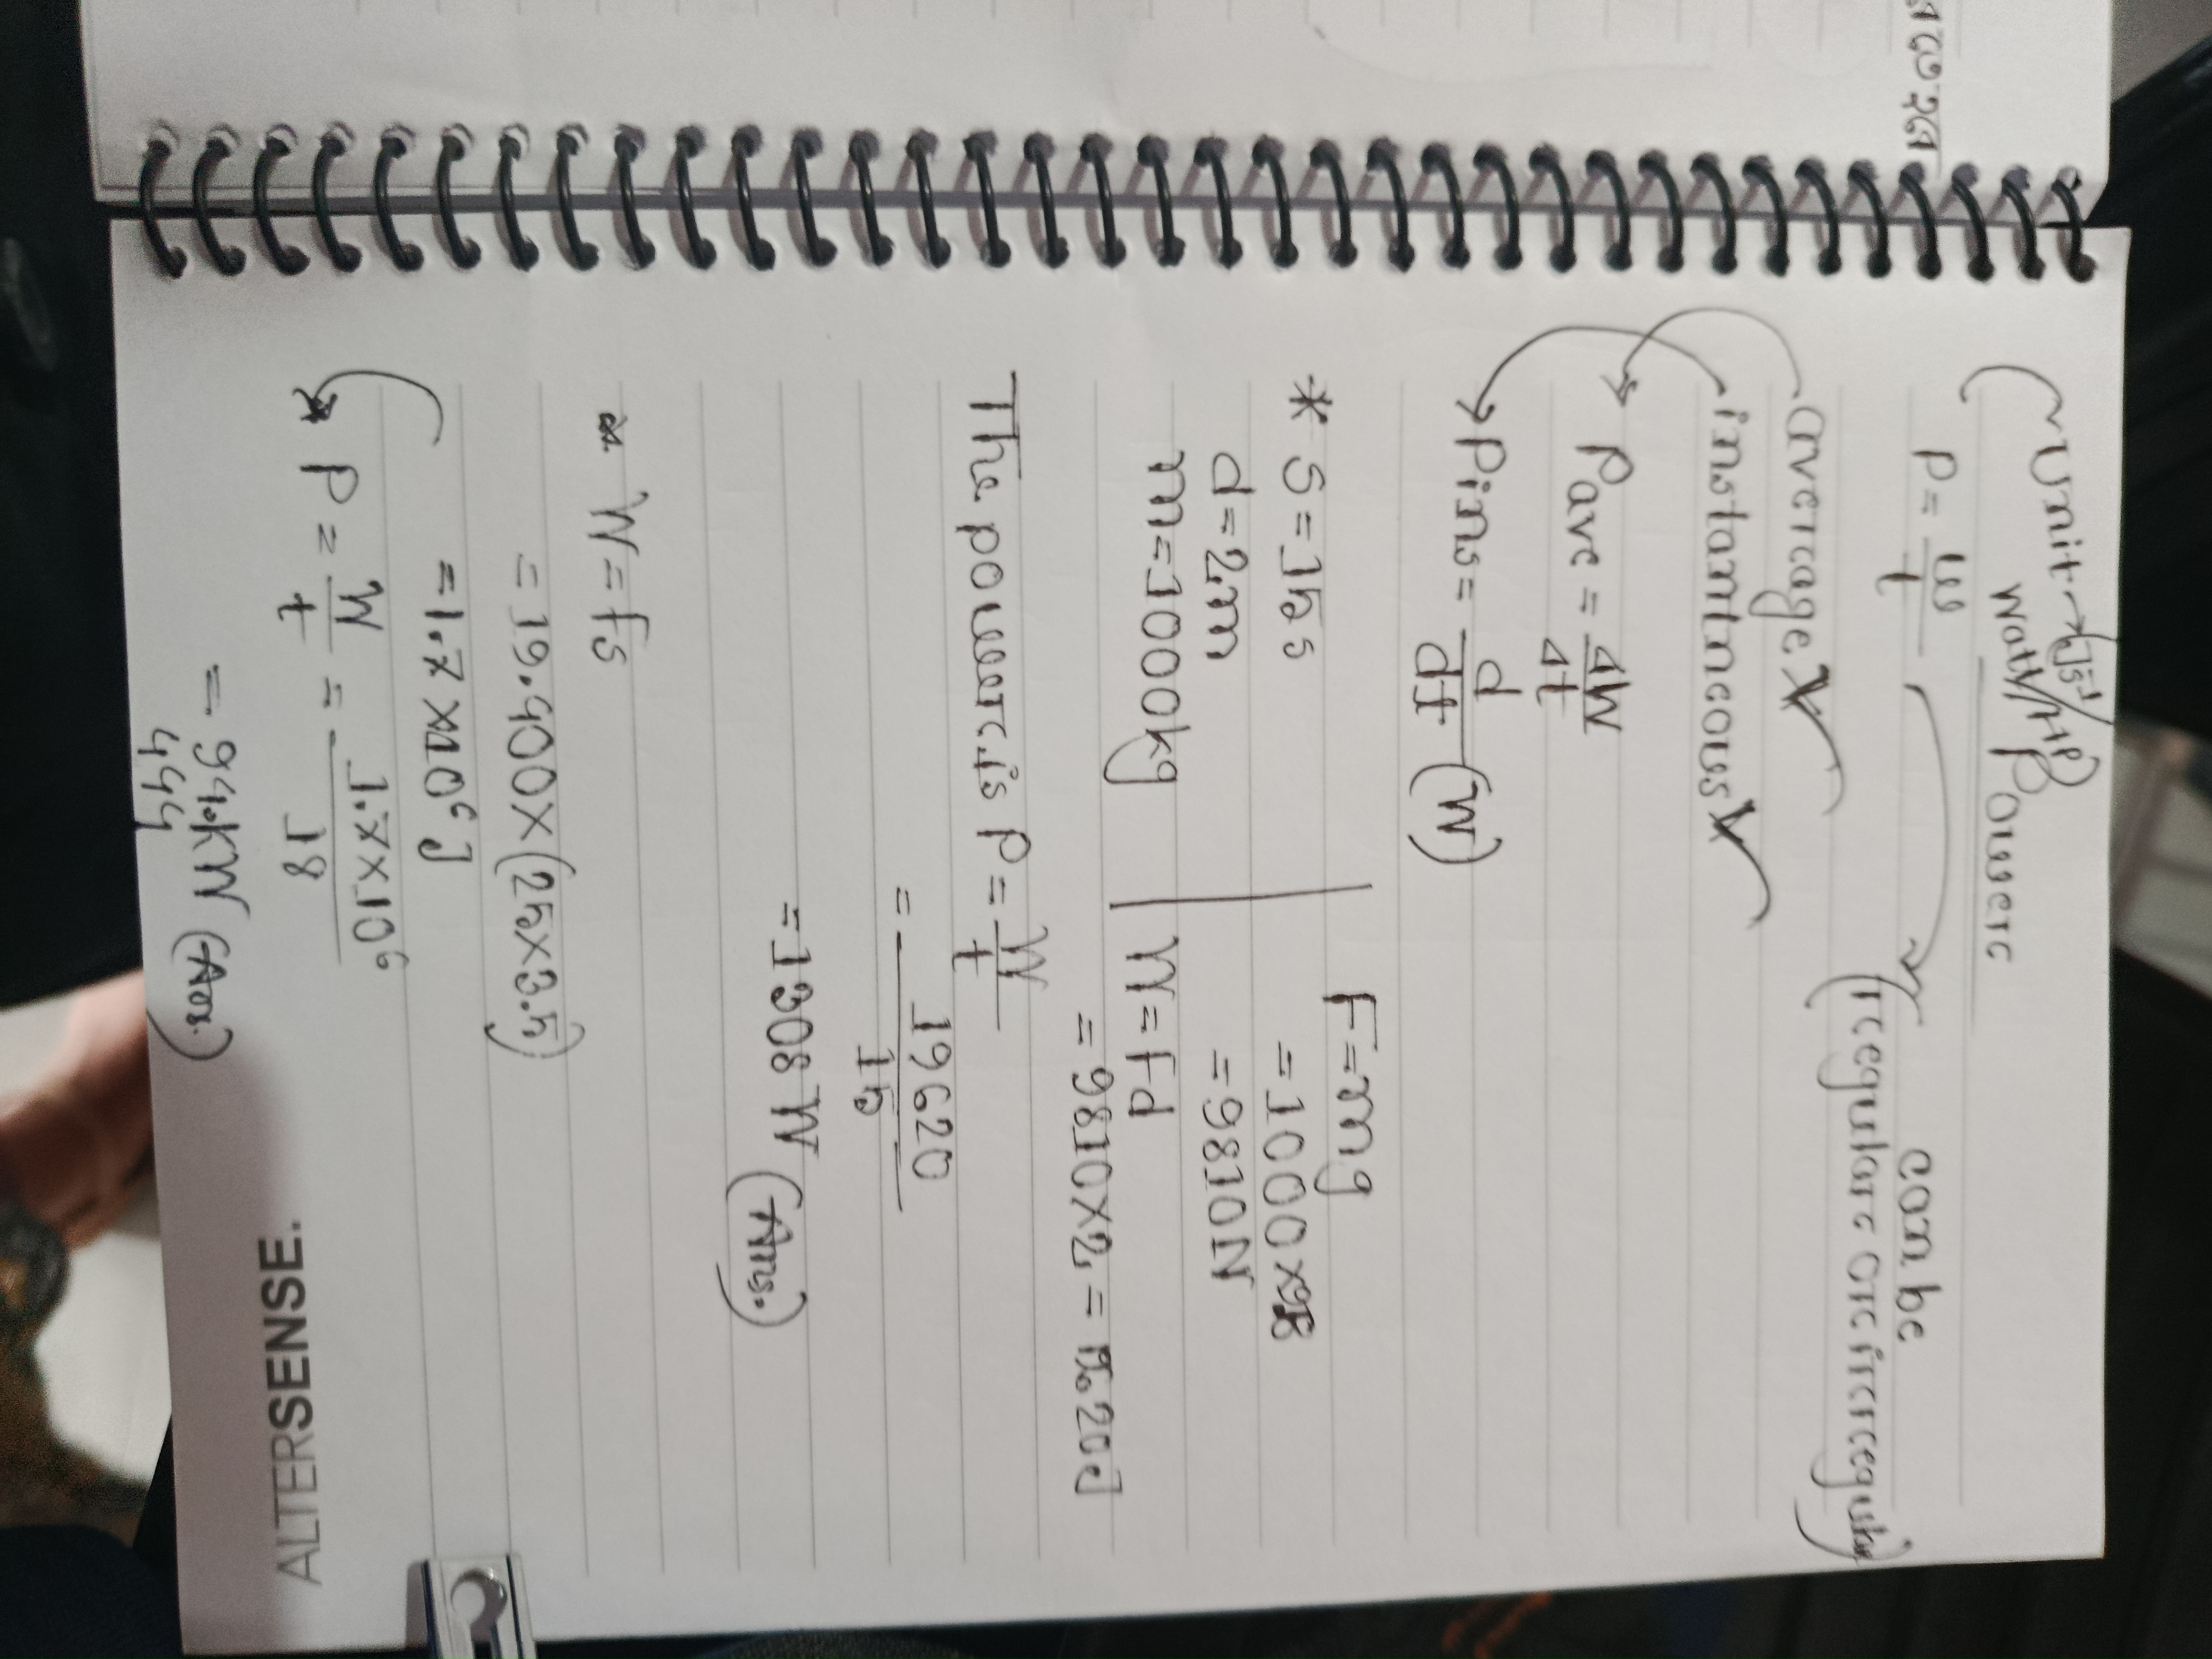 তে হলে
Power
Unit → Js⁻¹
watt/HP
P = w/t
can be
(regular or irregular)
average
instantneous
Pave = ΔW/Δt
Pins = d/dt (W)
* s = 15 s
d = 2m
m = 1000kg
F = mg
= 1000 x 9.8
= 9810N
W = Fd
= 9810 x 2 =
The power is P = W/t
= 19620/15
= 1308 W (Ans.)
W = Fs
= 19.400 x (25 x 3.5)
= 1.7 x 10⁶ J
P = W/t = 1.7 x 10⁶/18
= 94.kW (Ans.)
444
ALTERSENSE.